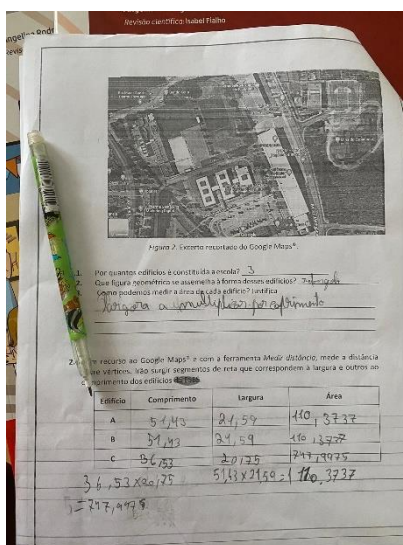 Revisão científica: Isabel Fialho
Figura 2. Excerto recortado do Google Maps®.
1. Por quantos edifícios é constituída a escola? 3
2. Que figura geométrica se assemelha à forma desses edifícios?
Como podemos medir a área de cada edifício? Justifica
largura a multiplicar por coprimento
2. recurso ao Google Maps® e com a ferramenta Medir distância, mede a distância
vértices. Irão surgir segmentos de reta que correspondem à largura e outros ao
comprimento dos edifícios
Edifício Comprimento Largura Área
A 51,43 21,59 110,3737
B 51,43 21,59 110,3737
C 36,53 20,75 747,9975
36,53x20,75 51,43x21,59=1110,3737
=747,9975